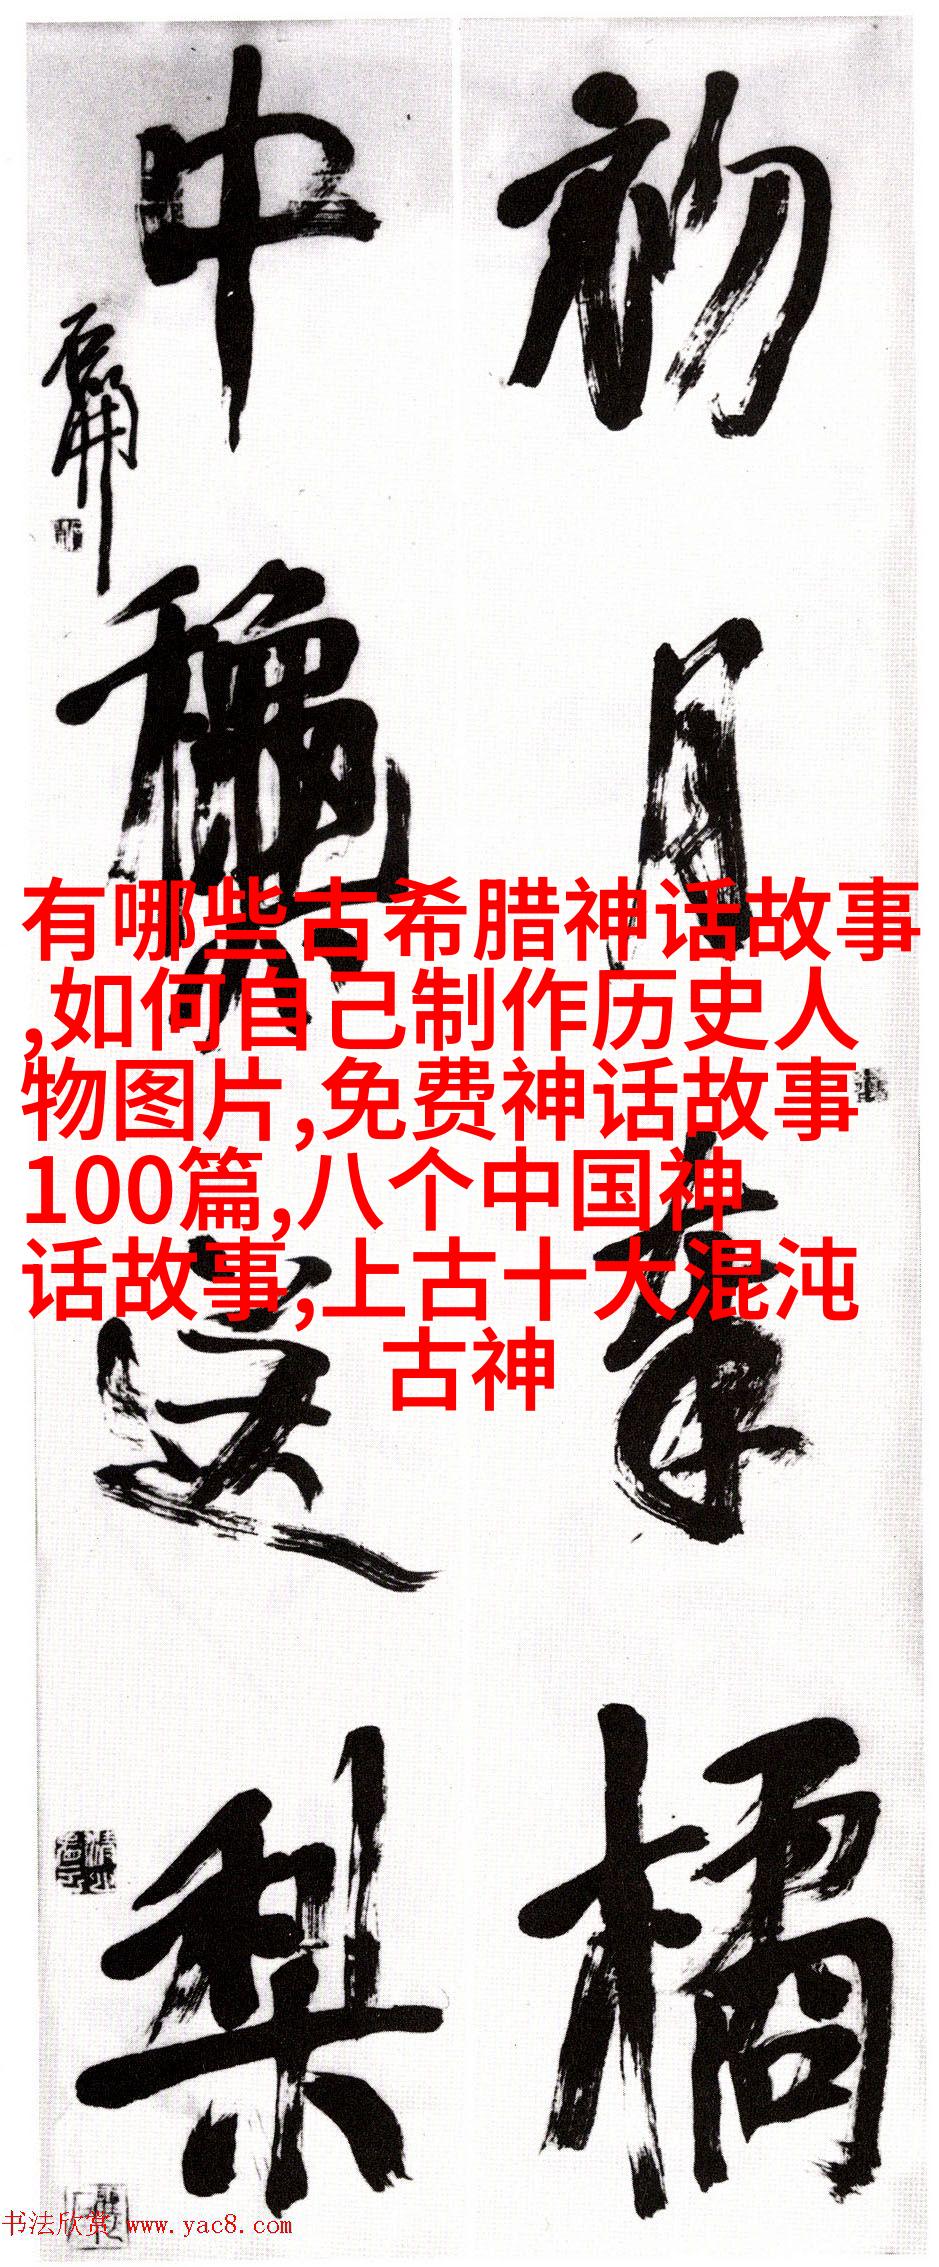 初月章橘
中穐宗梨
有哪些古希腊神话故事
,如何自己制作历史人
物图片,免费神话故事
100篇,八个中国神
话故事,上古十大混沌
古神
书法欣赏 www.yac8.com